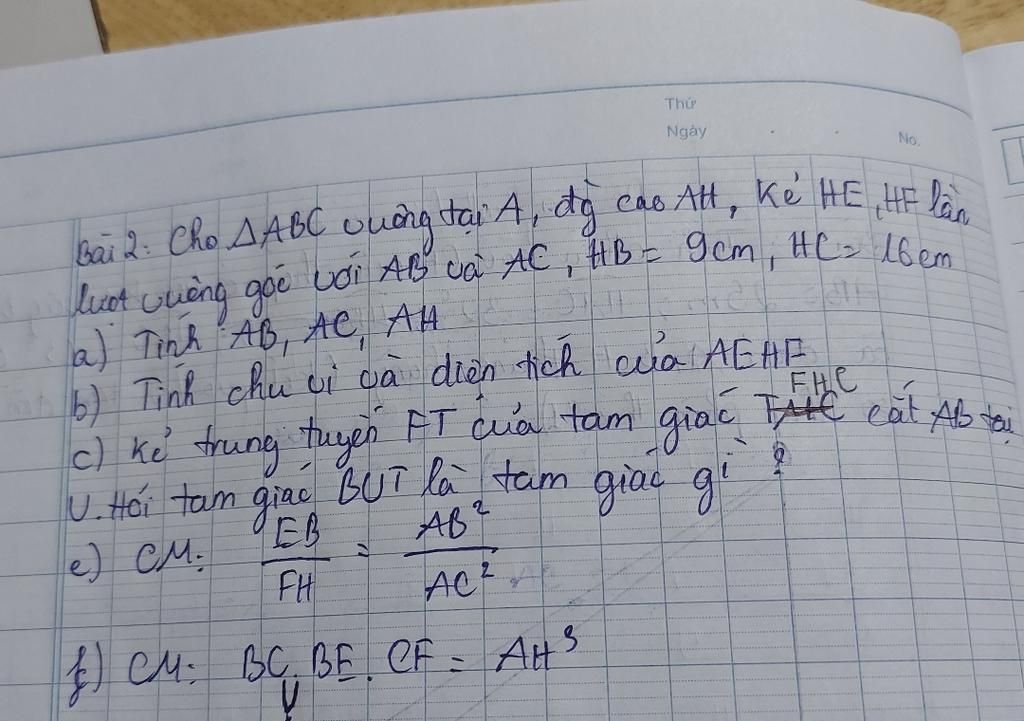 Thứ
Ngày
No.
Bài 2: Cho ΔABC vuông tại A, đg cao AH, Kẻ HE, HF lần
lượt vuông góc với AB và AC, HB = 9cm, HC = 16cm
a) Tính AB, AC, AH
b) Tính chu vi và diện tích của AEHF
FHC
c) Kẻ trung tuyến FT của tam giác cắt AB tại
U. Hỏi tam giác BUT là tam giác gì ?
e) CM: EB/FH = AB²/AC²
f) CM: BC.BE.CF = AH³